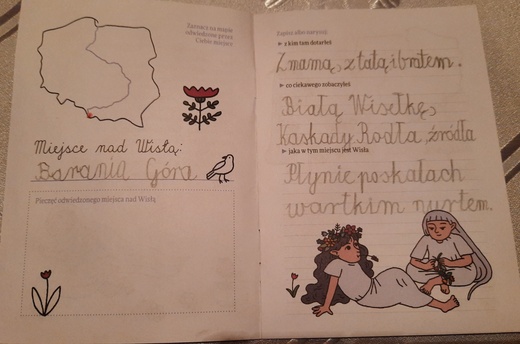 Zaznacz na mapie
odwiedzone przez
Ciebie miejsce
Miejsce nad Wisłą:
Barania Góra
Pieczęć odwiedzonego miejsca nad Wisłą
Zapisz albo narysuj:
z kim tam dotarłeś
Z mamą, z tatą i bratem.
co ciekawego zobaczyłeś
Białą Wisełkę,
Kaskady Rodła, źródła
jaka w tym miejscu jest Wisła
Płynie po skałach
wartkim nurtem.